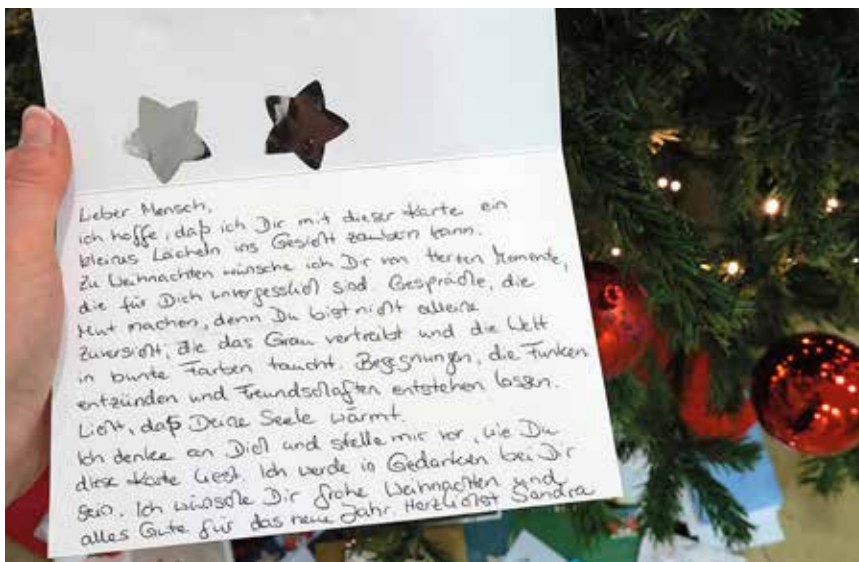 Lieber Mensch,
ich hoffe, daß ich Dir mit dieser Karte ein
kleines Lächeln ins Gesicht zaubern kann.
Zu Weihnachten wünsche ich Dir von Herzen Momente,
die für Dich unvergesslich sind. Gespräche, die
Mut machen, denn Du bist nicht alleine
Zuversicht, die das Grau vertreibt und die Welt
in bunte Farben taucht. Begegnungen, die Funken
entzünden und Freundschaften entstehen lassen.
Licht, daß Deine Seele wärmt.
Ich denke an Dich und stelle mir vor, wie Du
diese Karte liest. Ich werde in Gedanken bei Dir
sein. Ich wünsche Dir frohe Weihnachten und
alles Gute für das neue Jahr. Herzlichst Sandra